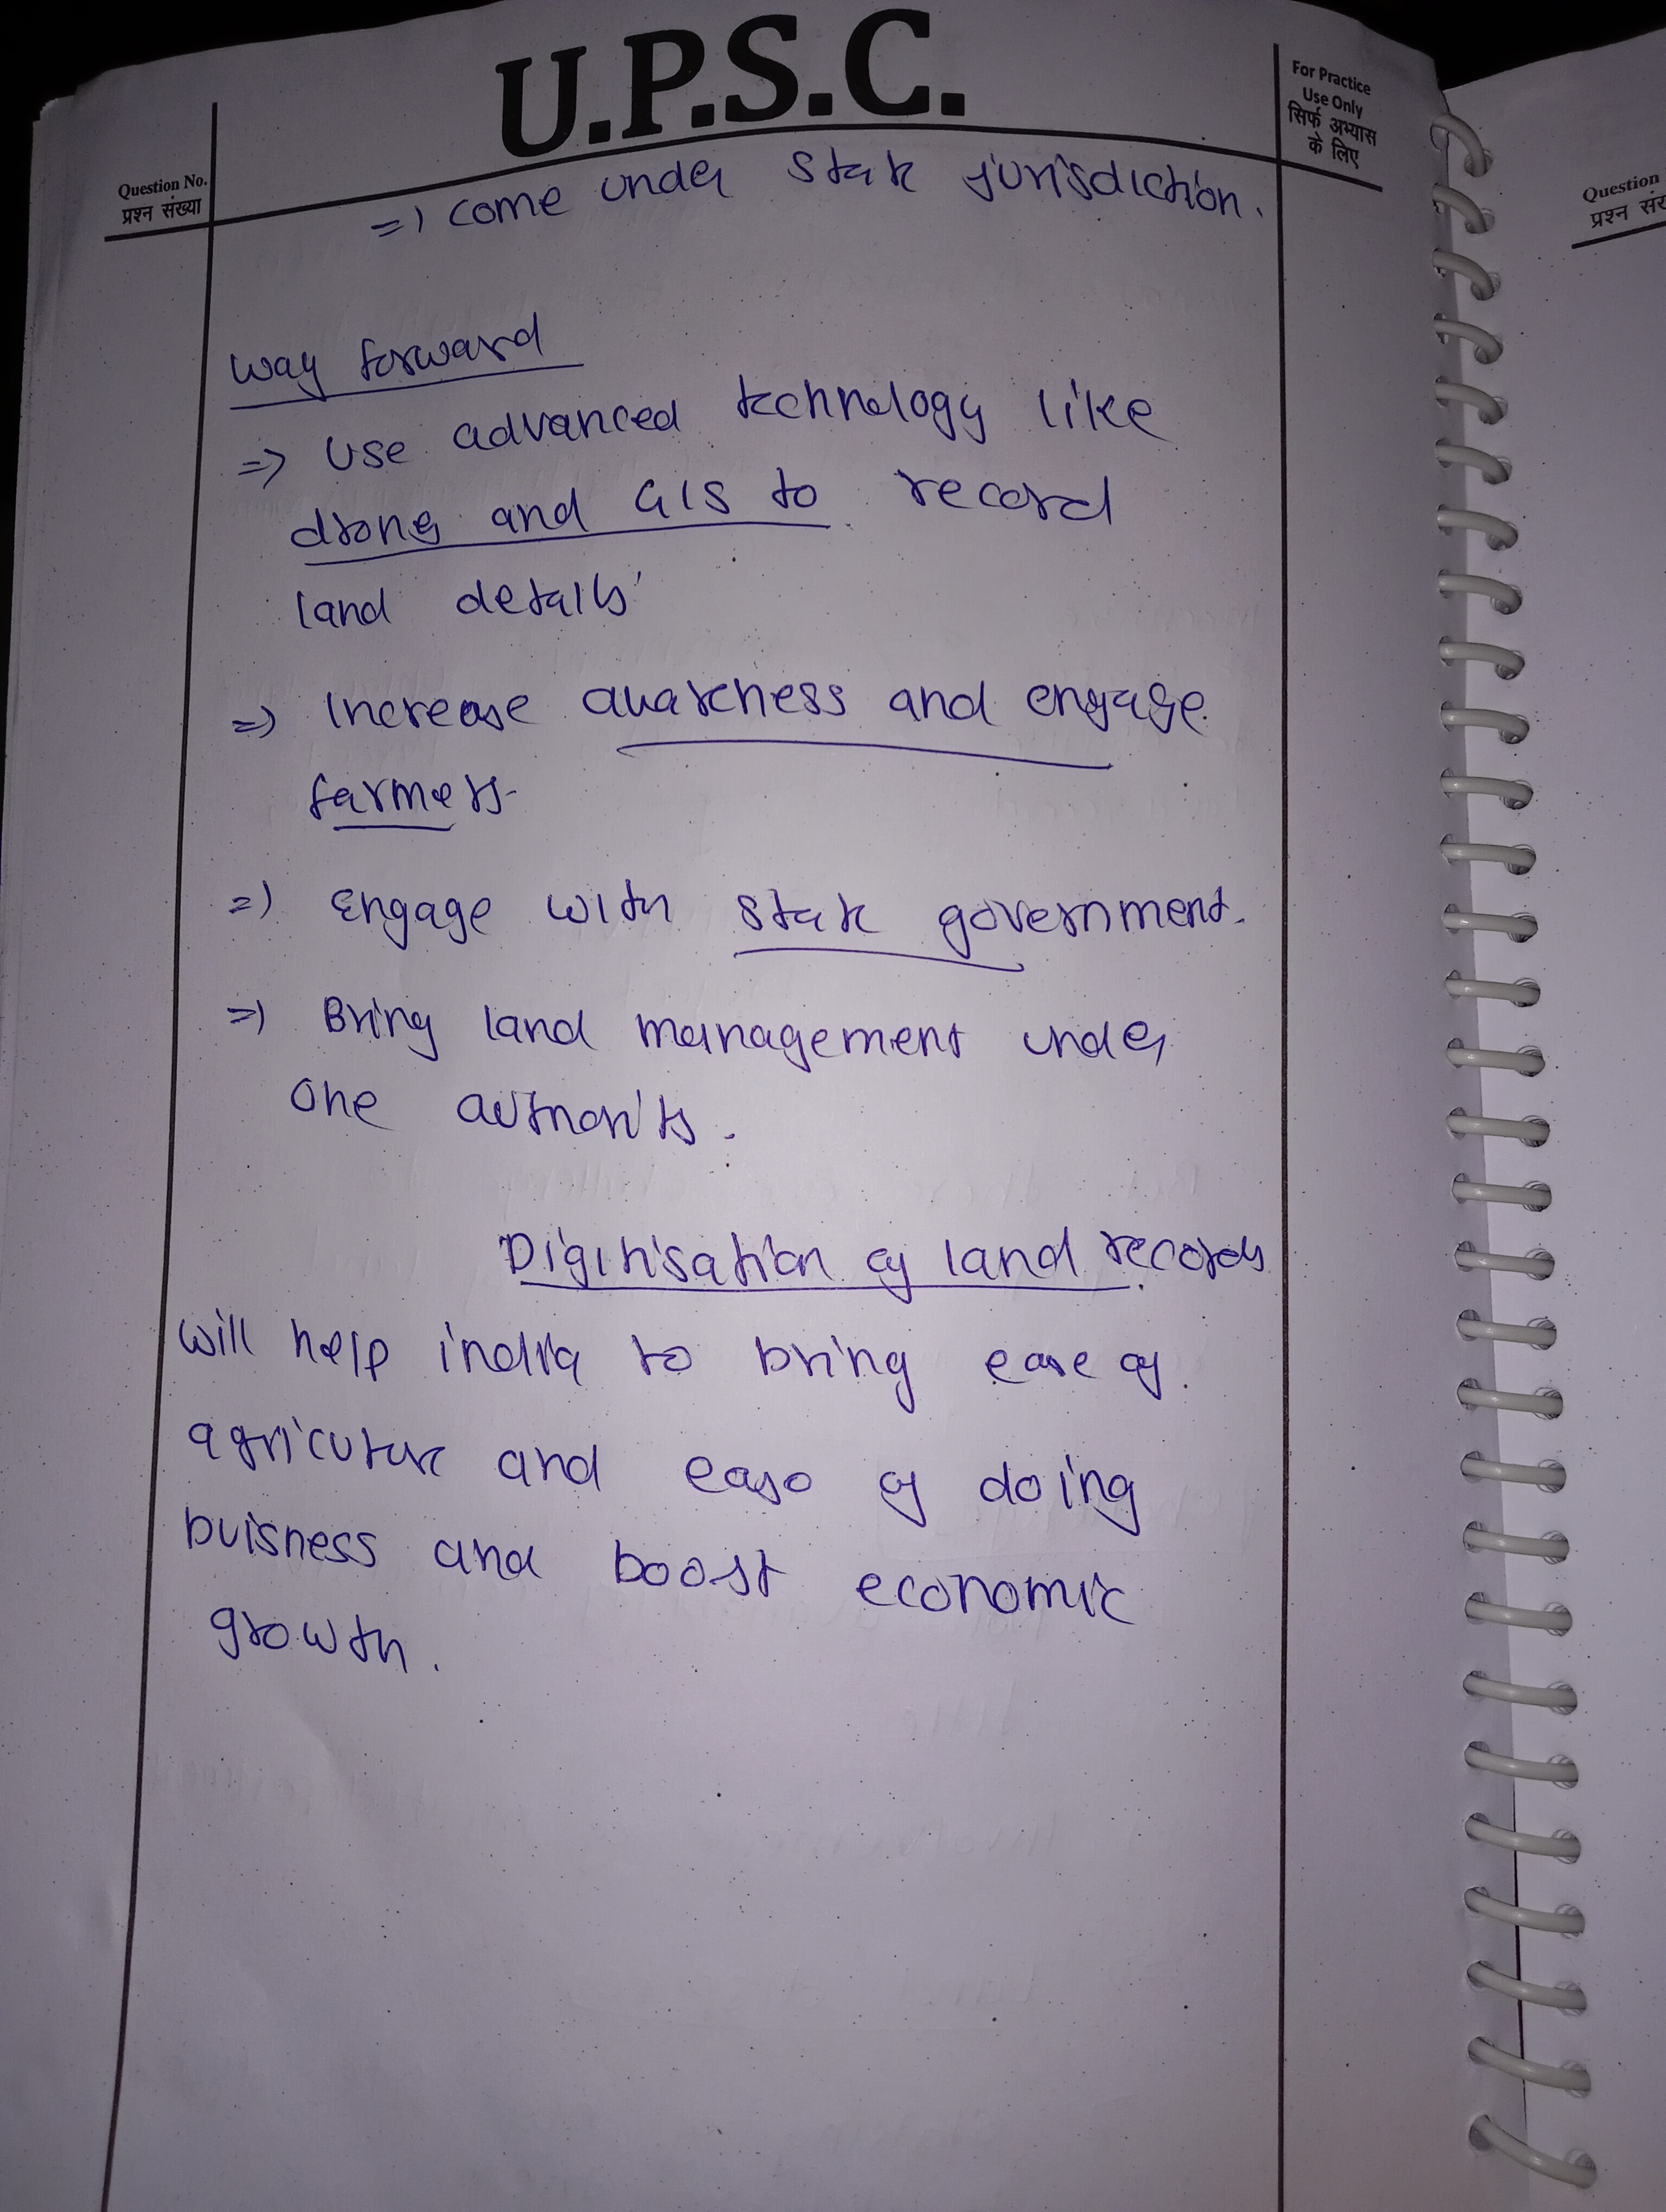 U.P.S.C.
For Practice
Use Only
सिर्फ अभ्यास
के लिए
Question No.
प्रश्न संख्या
=) come under state jurisdiction.
Way forward
=> Use advanced technology like
drones and GIS to record
land details
=> Increase awareness and engage
farmers.
=) Engage with state government.
=) Bring land management under
one authority.
Digitisation of land records
will help india to bring ease of
agricuture and ease of doing
buisness and boost economic
growth.
Question
प्रश्न